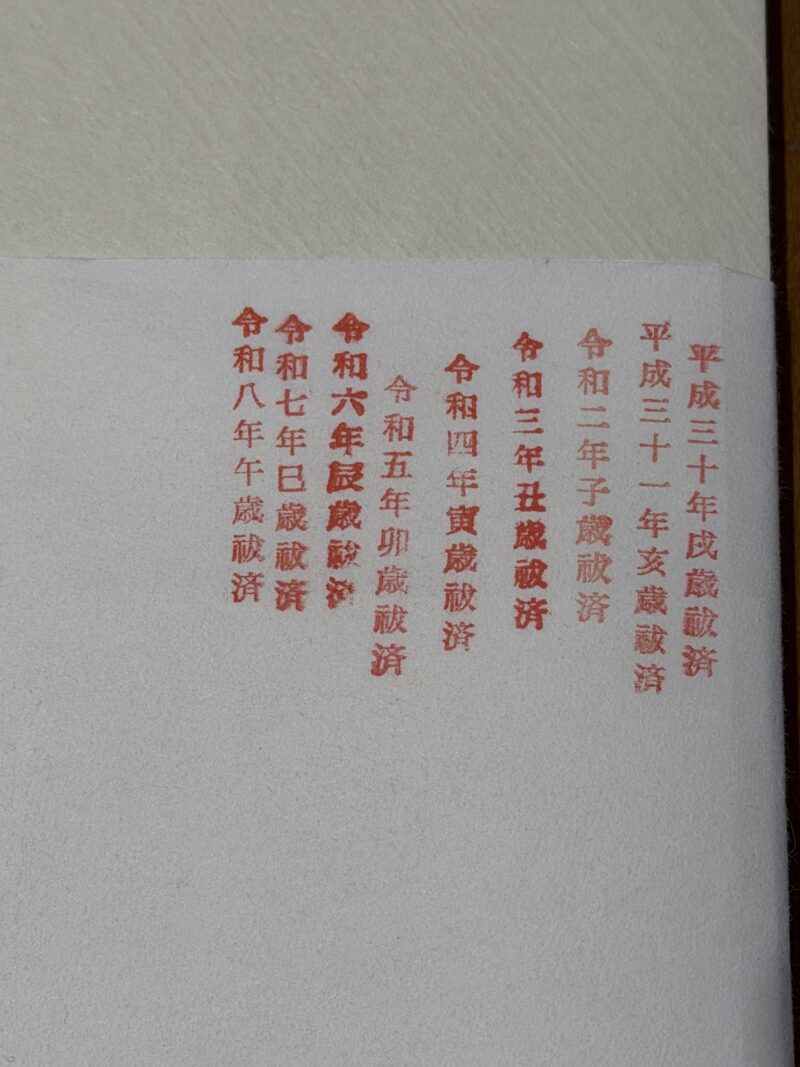 平成三十年戌歳祓済
平成三十一年亥歳祓済
令和二年子歳祓済
令和三年丑歳祓済
令和四年寅歳祓済
令和五年卯歳祓済
令和六年辰歳祓済
令和七年巳歳祓済
令和八年午歳祓済